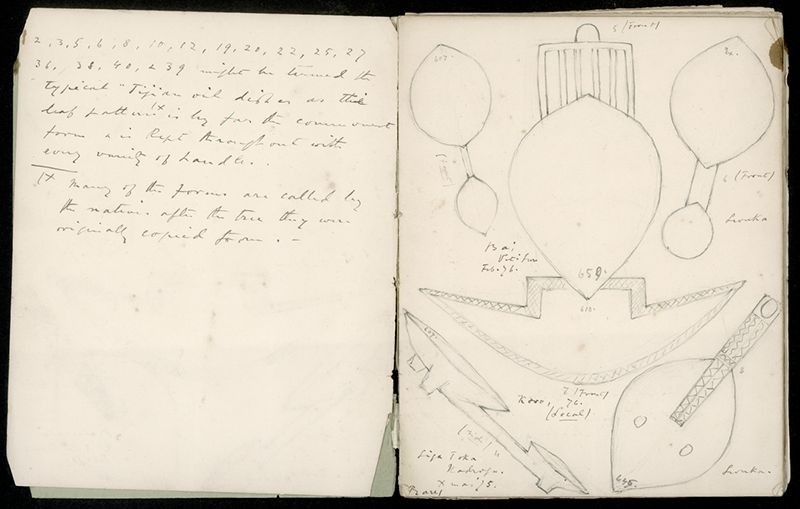 2, 3, 5, 6, 8, 10, 12, 19, 20, 22, 25, 27
36, 38, 40, & 39 might be termed the
typical "Fijian oil dishes as this
leaf pattern 1x is by far the commonest
form & is kept throughout with
every variety of handle.
1x Many of the forms are called by
the natives after the tree they were
originally copied from. –
5 (Front)
6 (Front)
Levuka
Bai
Vitilevu
Feb. 76.
650.
610.
7 (Front)
Koro, 76.
(Local)
Siga Toka
Nadroga.
Xmas 75.
Rare
8
645.
Levuka.